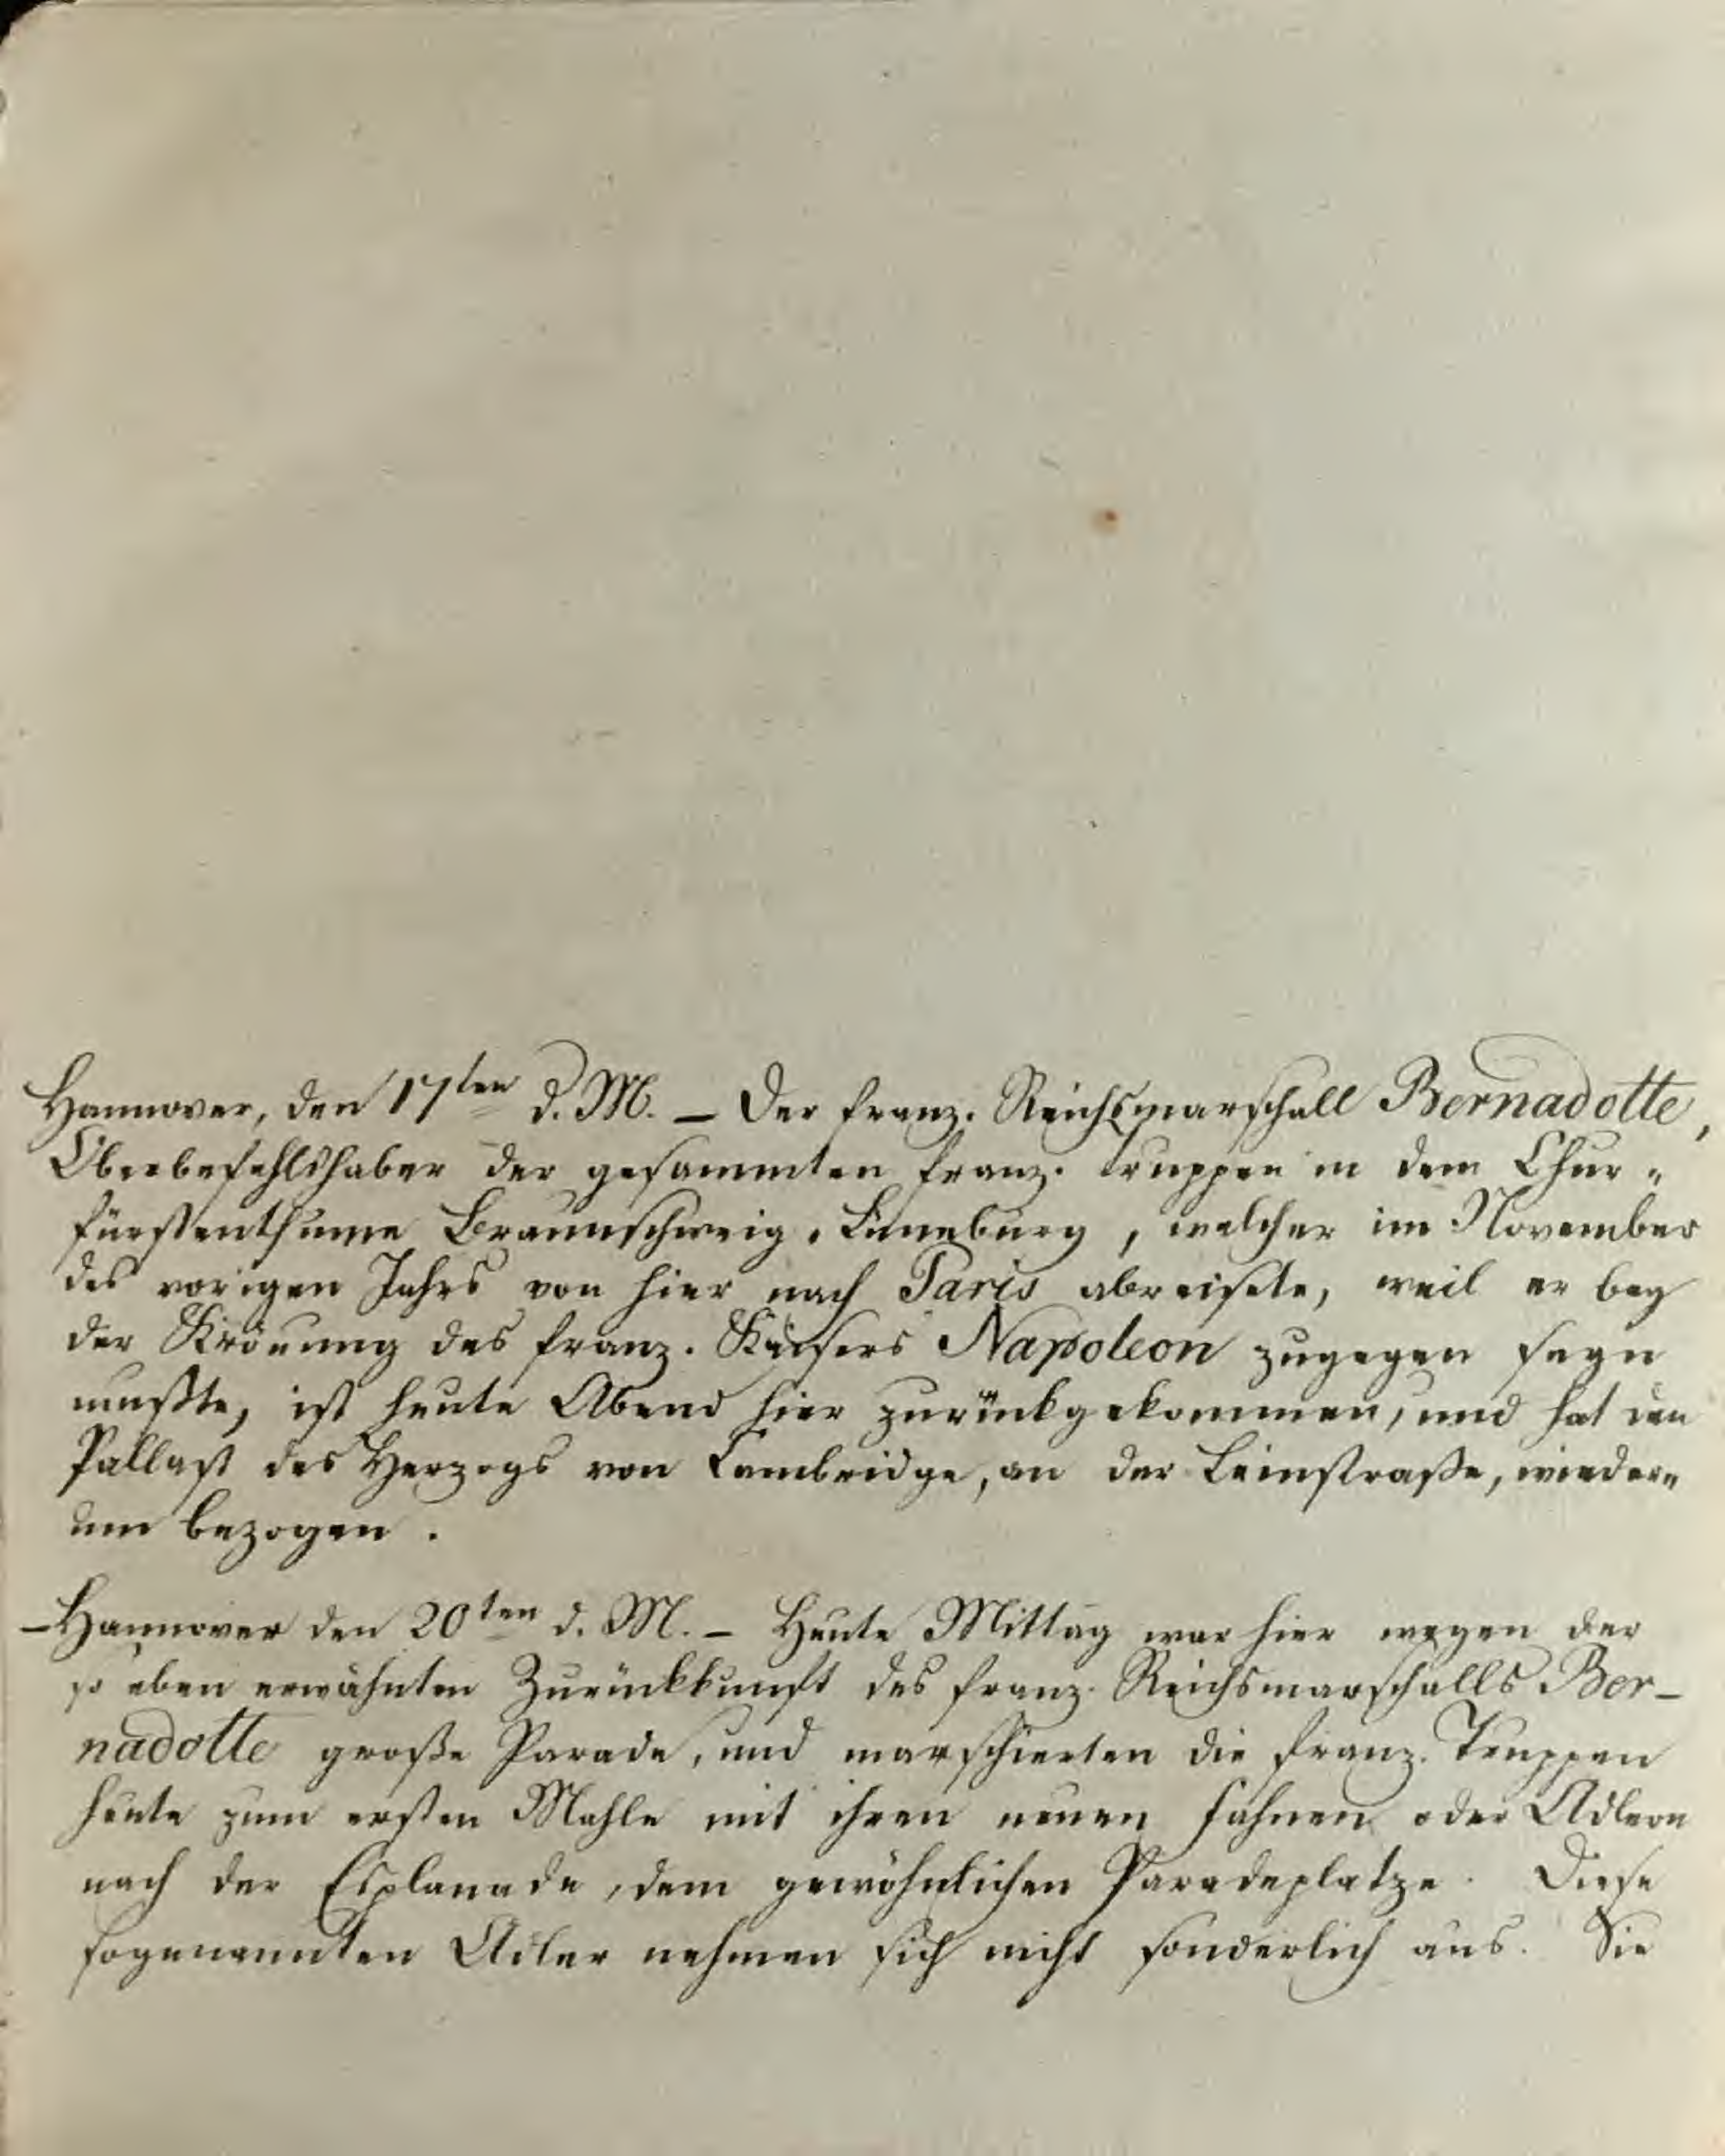 Hannover, den 17ten d. M. – Der franz. Reichsmarschall Bernadotte,
Oberbefehlshaber der gesammten franz. Truppen in dem Chur„
fürstenthume Braunschweig-Lüneburg, welcher im November
des vorigen Jahrs von hier nach Paris abreisete, weil er bey
der Krönung des franz. Kaisers Napoleon zugegen seyn
mußte, ist heute Abend hier zurückgekommen, und hat den
Pallast des Herzogs von Cambridge, an der Leinstraße, wieder„
um bezogen.
– Hannover den 20ten d. M. – Heute Mittag war hier wegen der
so eben erwähnten Zurückkunft des franz. Reichsmarschalls Ber–
nadotte große Parade, und marschierten die franz. Truppen
heute zum ersten Mahle mit ihren neuen Fahnen oder Adlern
nach der Esplanade, dem gewöhnlichen Paradeplatze. Diese
sogenannten Adler nehmen sich nicht sonderlich aus. Sie